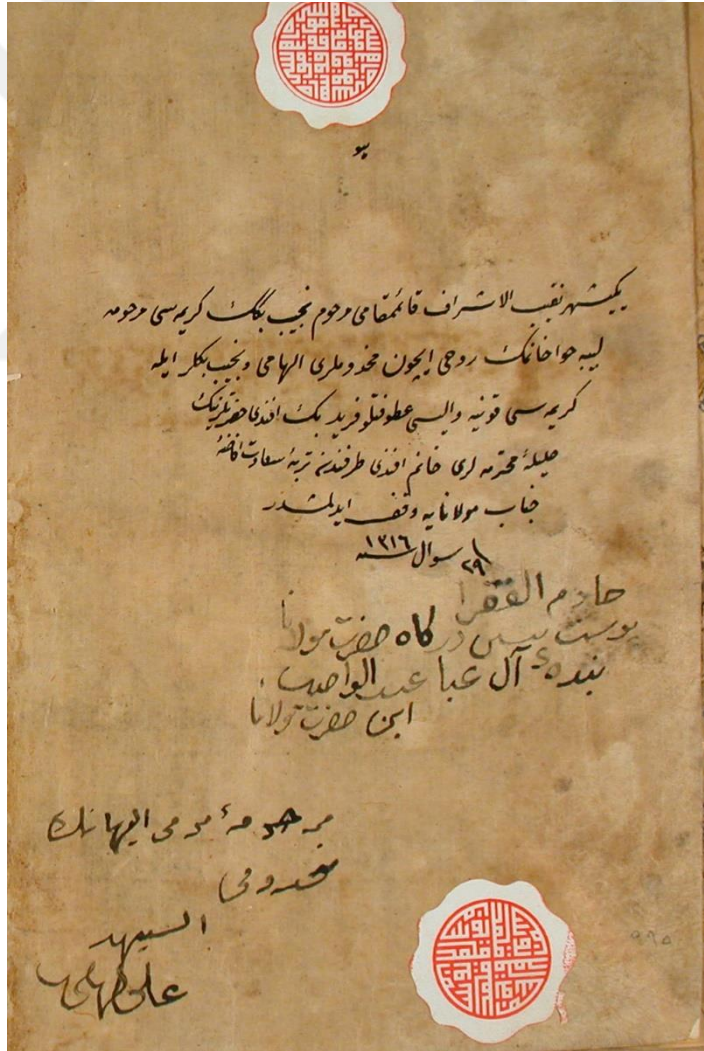 یکیشهر نقیب الاشراف قائمقامی مرحوم نجیب بگك کریمه‌سی مرحومه
لبیبه حوا خانمك روحی ایچون مخدوملری الهامی و نجیب بکلر ایله
کریمه‌سی قونیه والیسی عطوفتلو فرید بك افندی حضرتلرینك
حلیلهٔ محترمه لری خانم افندی طرفندن تربهٔ سعادت افاضهٔ
جناب مولانایه وقف ایدلمشدر
٢٩ شوال سنه ١٣١٦
خادم الفقرا
پوست نشین درگاه حضرت مولانا
بندهٔ آل عبا عبد الواحد
ابن حضرت مولانا
مرحومهٔ مومی الیهانك
مخدومی
السید
علی الهامی